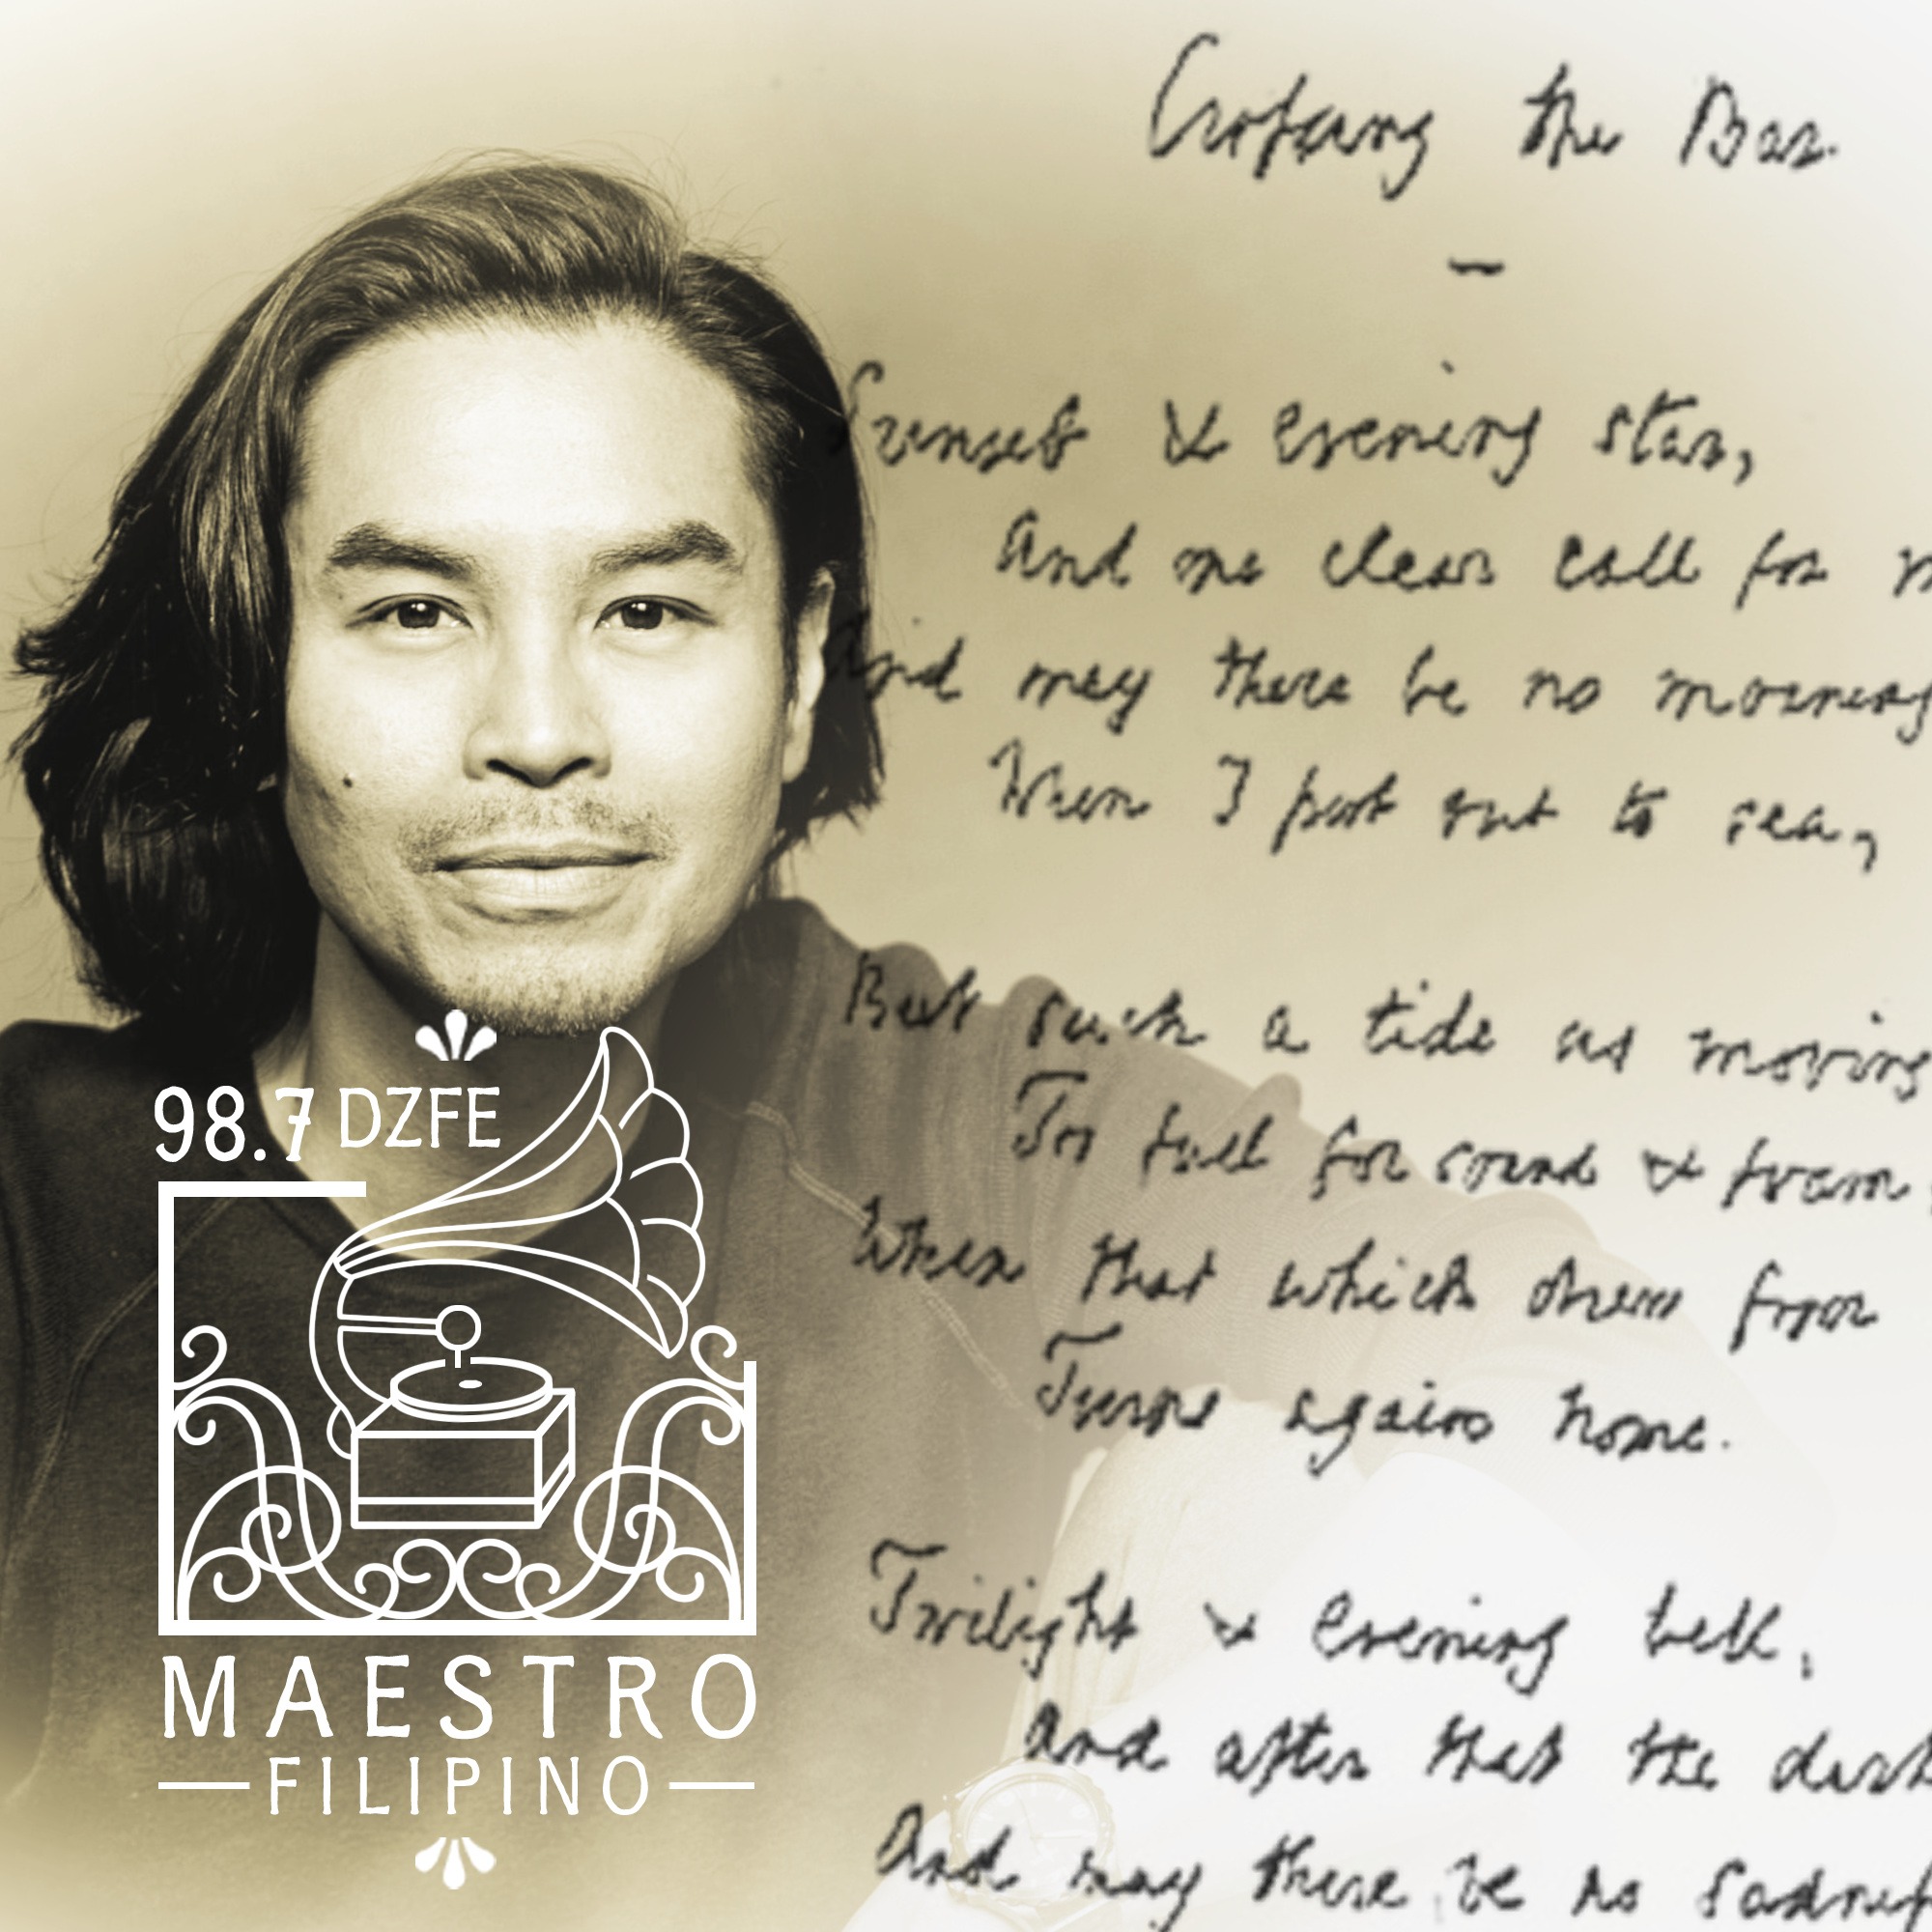 Crossing the Bar.
Sunset & evening star,
And one clear call for m
And may there be no moaning
When I put out to sea,
But such a tide as moving
Too full for sound & foam
When that which drew from
Turns again home.
Twilight & evening bell,
And after that the dark
And may there be no sadness
98.7 DZFE
MAESTRO
FILIPINO